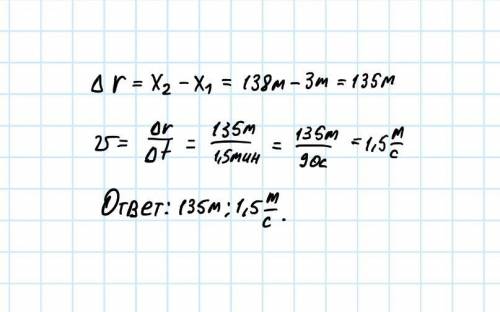 Δr = x₂ − x₁ = 138м − 3м = 135м
υ = Δr/Δt = 135м/1,5мин = 135м/90с = 1,5 м/с
Ответ: 135м; 1,5 м/с.